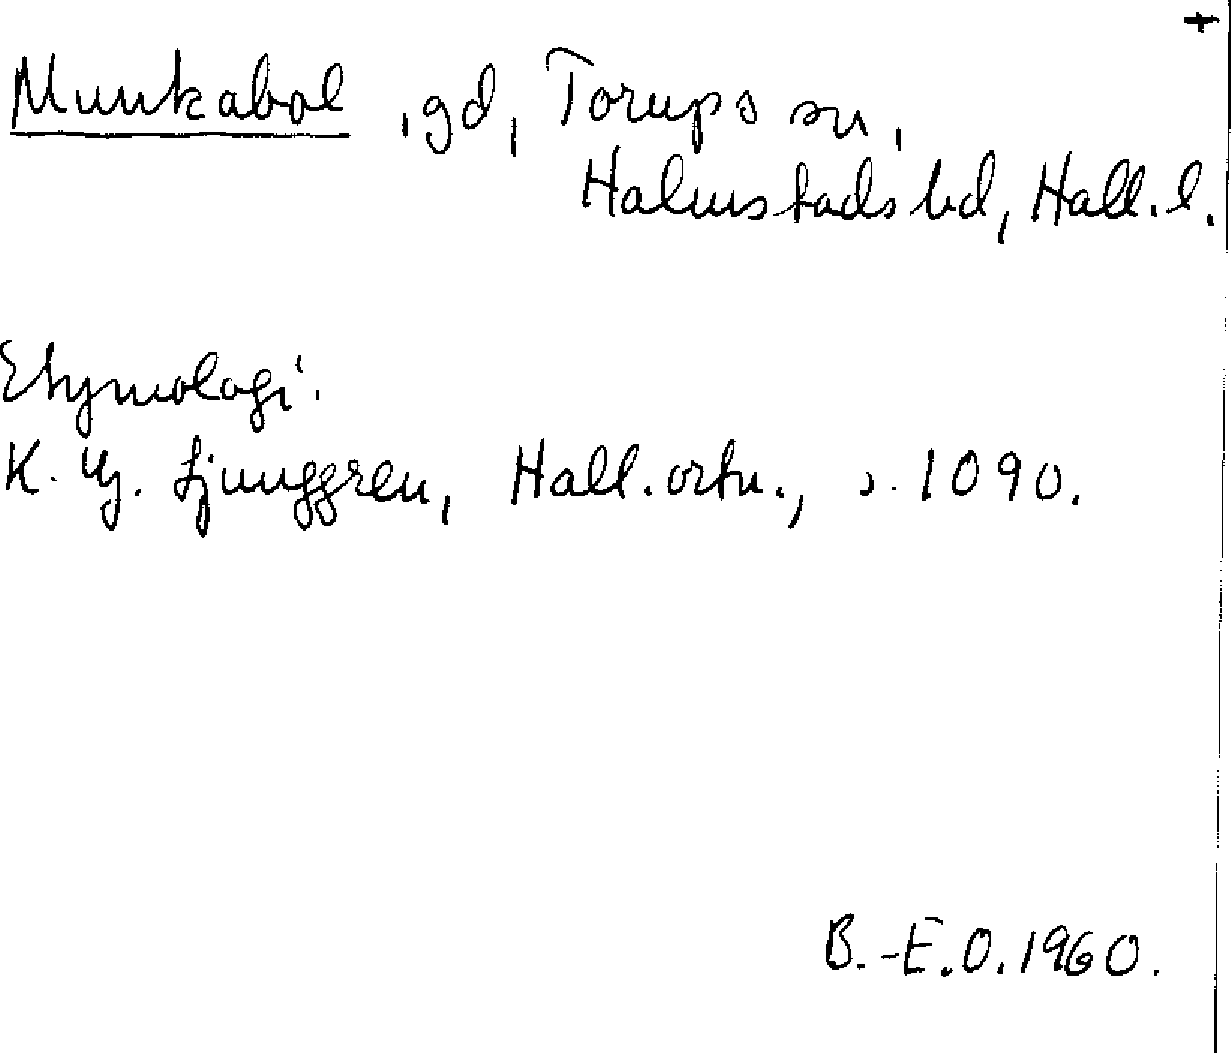 Munkabol , gd, Torups sn,
Halmstads hd, Hall. l.
Etymologi.
K. G. Ljunggren, Hall. ortn., s. 1090.
B.-E.O. 1960.